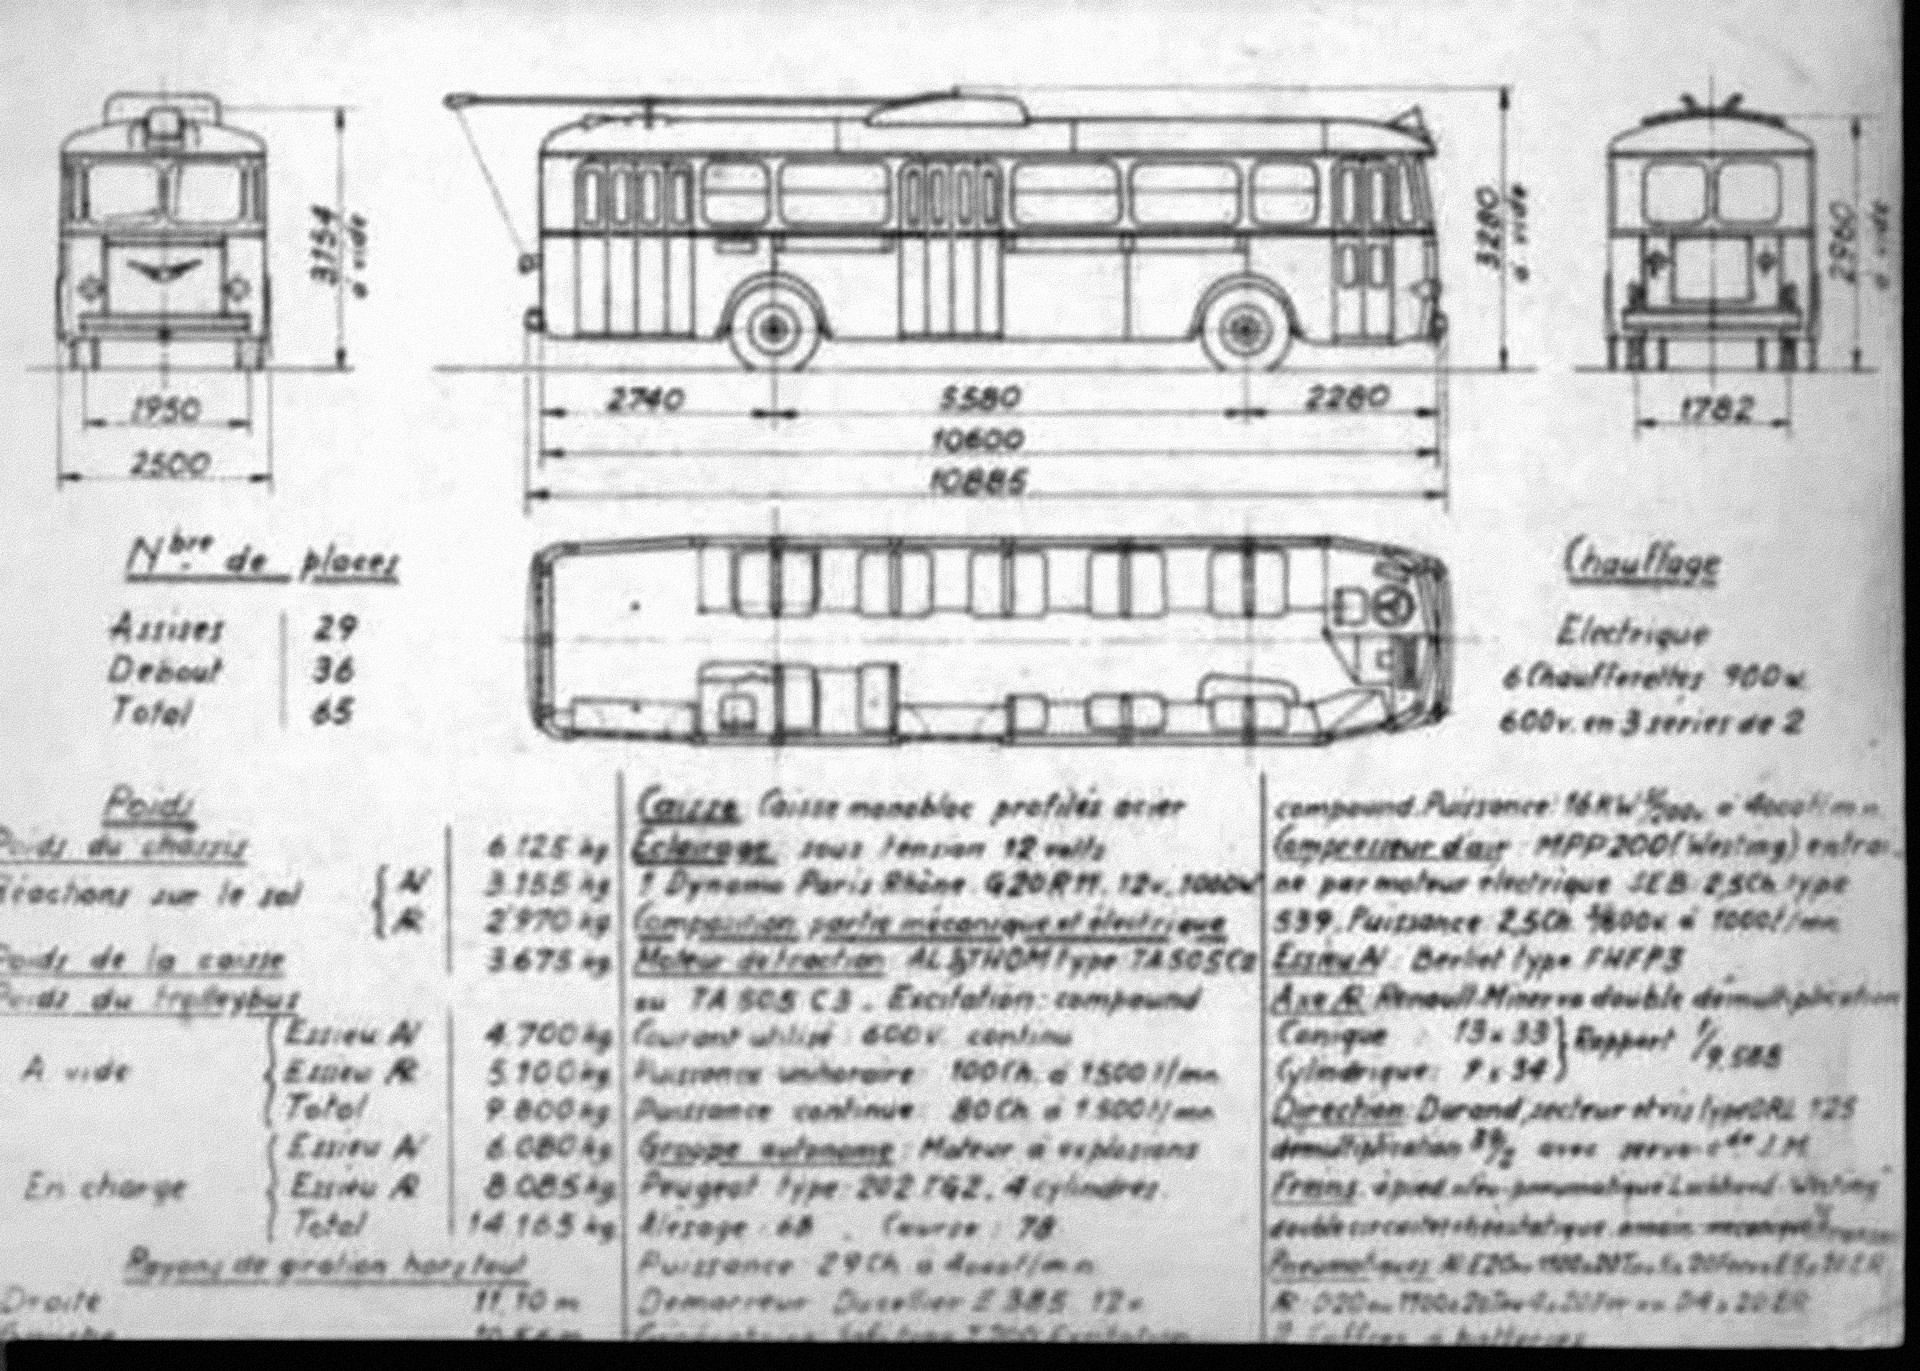 3154
à vide
3280
à vide
2960
à vide
1950
2500
2740
5580
2280
10600
10885
1782
Nbre de places
Assises 29
Debout 36
Total 65
Chauffage
Electrique
6 Chaufferettes 900w.
600v. en 3 séries de 2
Poids
Poids du chassis 6.125 kg
Réactions sur le sol { AV 3.155 kg
AR 2.970 kg
Poids de la caisse 3.675 kg
Poids du trolleybus
A vide { Essieu AV 4.700 kg
Essieu AR 5.100 kg
Total 9.800 kg
En charge { Essieu AV 6.080 kg
Essieu AR 8.085 kg
Total 14.165 kg
Rayons de giration hors tout
Droite 11.10 m
Caisse: Caisse monobloc profilés acier
Eclairage: sous tension 12 volts
1 Dynamo Paris Rhône. G20R11. 12v. 1000w
Composition partie mécanique et électrique
Moteur de traction: ALSTHOM type: TA505C2
ou TA 505 C3. Excitation: compound
Courant utilisé: 600v. continu
Puissance unihoraire: 100 Ch. à 1500 t/mn
Puissance continue: 80 Ch à 1.500 t/mn
Groupe autonome: Moteur à explosions
Peugeot type: 202 TG2. 4 cylindres.
Alésage: 68. Course: 78
Puissance 29 Ch à 4000 t/mn
Demarreur Ducellier 12v
compound. Puissance: 16KW à 4000 t/mn.
Compresseur d'air: MPP200 (Westing) entrai-
né par moteur électrique SEB: 2,5Ch. type
539. Puissance: 2,5Ch. à 1000t/mn
Essieu AV: Berliet type FHFP3
Axe AR: Renault-Minerva double démultiplication
Conique: 13 x 33 } Rapport 1/9.588
Cylindrique: 9 x 34
Direction: Durand, secteur et vis type DRL 125
démultiplication avec servo-cde J.M.
Freins: à pied oléo-pneumatique Lockheed-Westing
double circuit et rhéostatique. à main: mécanique
Pneumatiques
batteries